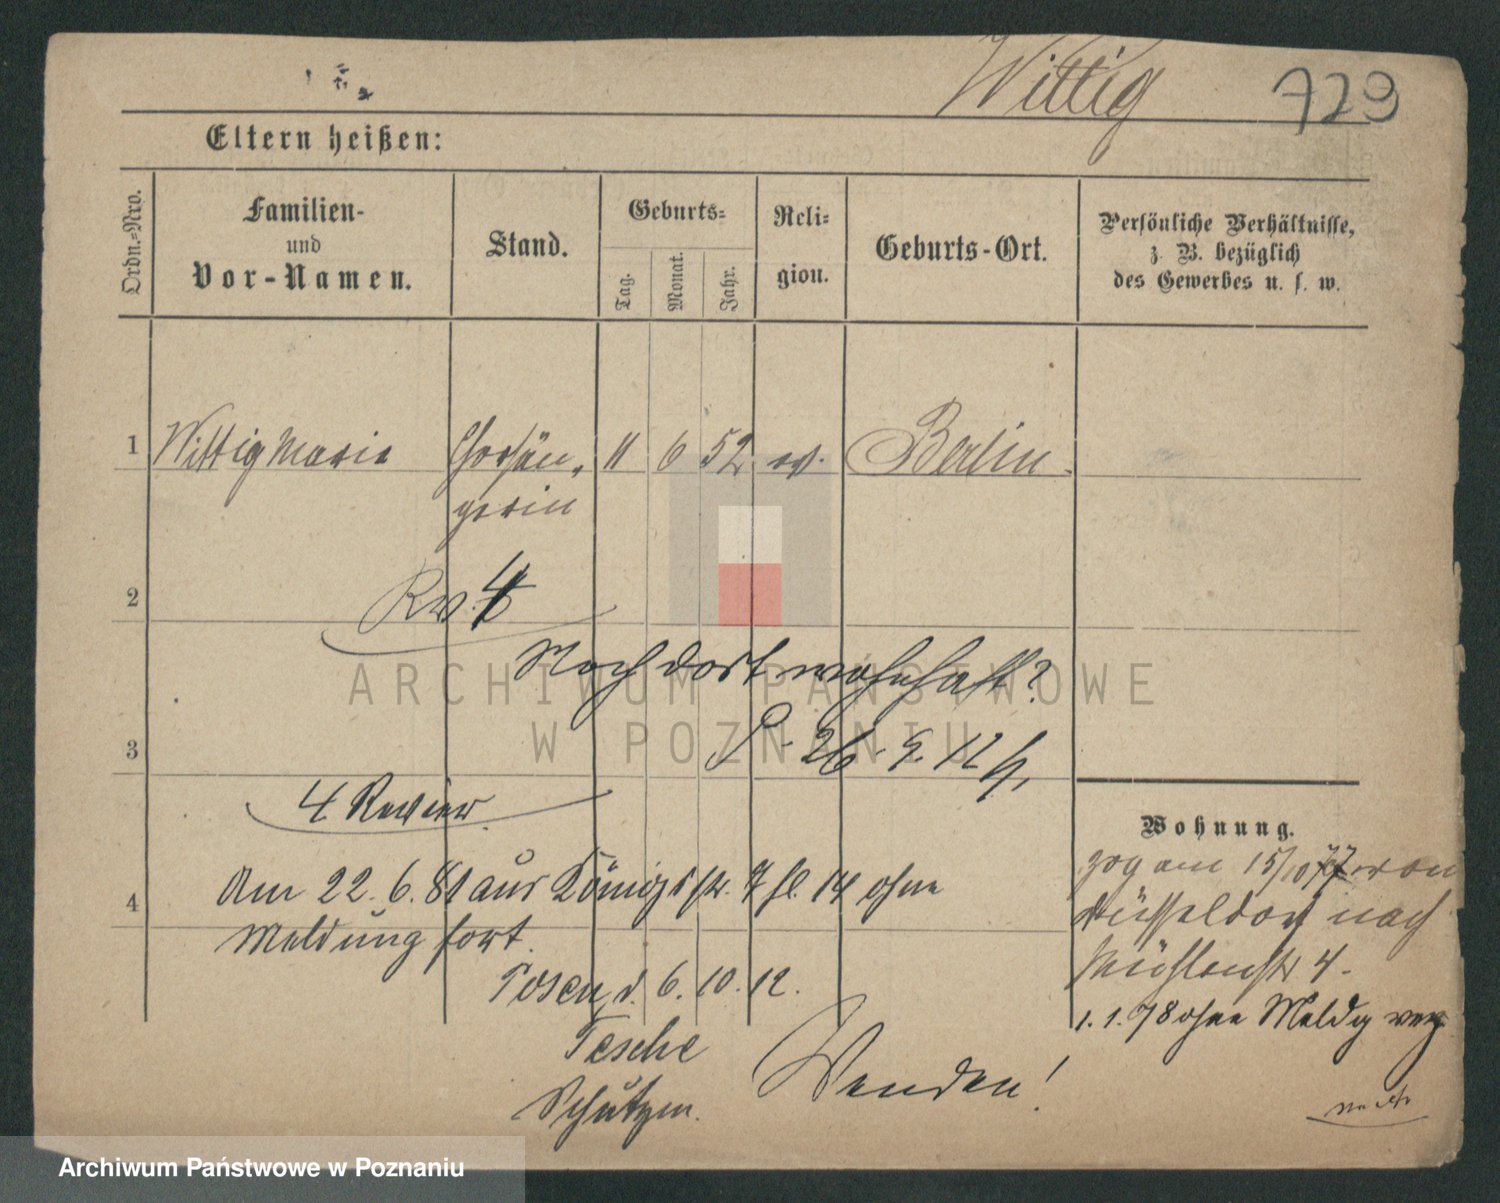 Wittig
729
Eltern heißen:
Ordn.=Nro.
Familien-
und
Vor-Namen.
Stand.
Geburts=
Tag.
Monat.
Jahr.
Reli=
gion.
Geburts-Ort.
Persönliche Verhältnisse,
z. B. bezüglich
des Gewerbes u. s. w.
1
Wittig Marie
Chorsän-
gerin
11
6
52
ev.
Berlin.
2
Rv. 4
Noch dort wohnhaft?
P. 26. 9. 12
3
4 Revier
Wohnung.
zog am 15/10 77 von
Düsseldorf nach
Mühlenstr 4.
1. 1. 78 ohne Meldg weg
4
Am 22. 6. 81 aus Königsstr. 7 fl. 14 ohne
Meldung fort.
Posen d. 6. 10. 12.
Tesche
Schutzm.
Wenden!
ARCHIWUM PAŃSTWOWE
W POZNANIU
Archiwum Państwowe w Poznaniu